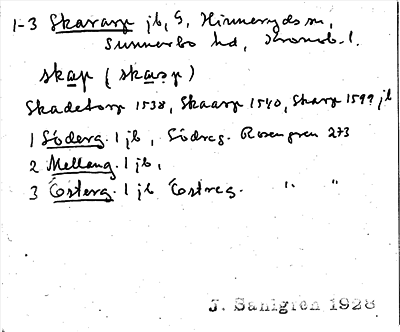 1-3 Skararp jb, G, Hinneryds sn,
Sunnerbo hd, Kronob. l.
skap (skasp)
Skadetorp 1538, Skaarp 1540, Skarp 1599 jb
1 Söderg. 1 jb, Södreg. Rosengren 273
2 Mellang. 1 jb,
3 Österg. 1 jb Östreg. " "
J. Sahlgren 1928